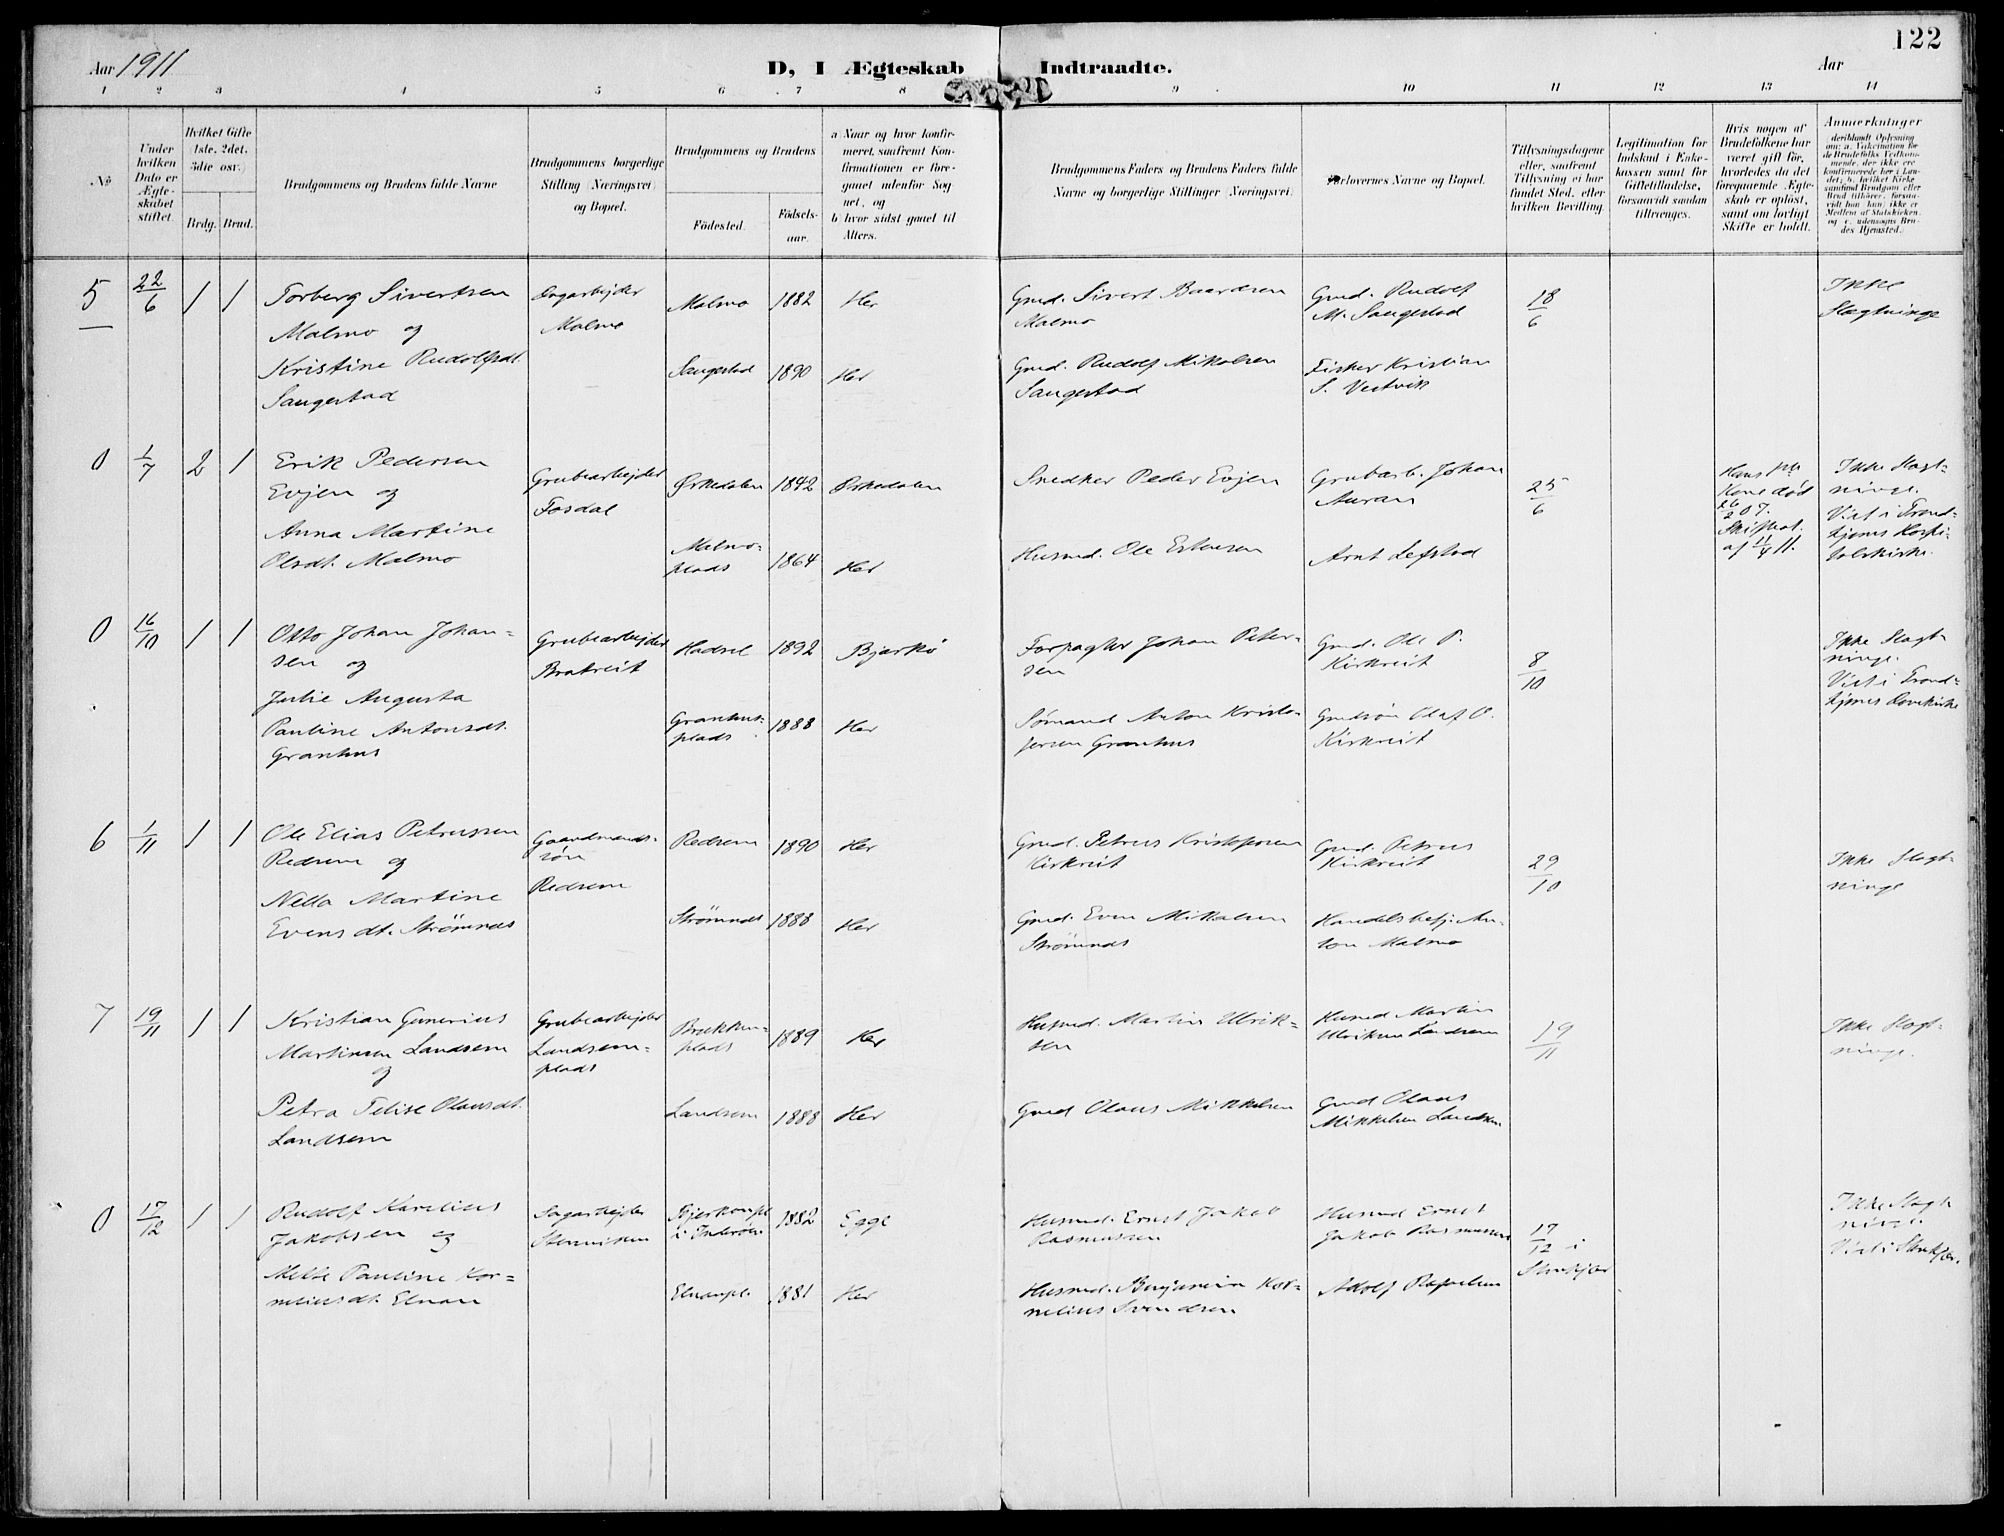 122
Aar 1911
D, I Ægteskab Indtraadte.
Aar
1 2 3 4 5 6 7 8 9 10 11 12 13 14
No
Under hvilken Dato er Ægteskabet stiftet.
Hvilket Gifte 1ste, 2det, 3die osv.
Brdg. Brud.
Brudgommens og Brudens fulde Navne
Brudgommens borgerlige Stilling (Næringsvei) og Bopæl.
Brudgommens og Brudens
Födested.
Födselsaar.
a Naar og hvor konfirmeret, saafremt Konfirmationen er foregaaet udenfor Sognet, og
b hvor sidst gaaet til Alters.
Brudgommens Faders og Brudens Faders fulde Navne og borgerlige Stillinger (Næringsvei).
Forlovernes Navne og Bopæl.
Tillysningsdagene eller, saafremt Tillysning ei har fundet Sted, efter hvilken Bevilling.
Legitimation for Indskud i Enkekassen samt for Giftetilladelse, forsaavidt saadan tiltrænges.
Hvis nogen af Brudefolkene har været gift för, hvorledes da det foregaaende Ægteskab er oplöst, samt om lovligt Skifte er holdt.
Anmerkninger
5 22/6 1 1
Torberg Sivertsen
Malmo og
Kristine Rudolfsdt.
Saugestad
Sagarbejder
Malmo
Malmo 1882 Her
Saugestad 1890 Her
Gmd. Sivert Baardsen
Malmo
Gmd. Rudolf Mikalsen
Saugestad
Gmd. Rudolf
M. Saugestad
Fisker Kristian
S. Vestvik
18/6
Ikke
Slægtninge
0 1/7 2 1
Erik Pedersen
Evjen og
Anna Martine
Olsdt. Malmo
Grubearbejder
Fosdal
Ørkedalen 1842 Ørkedalen
Malmoplads 1864 Her
Snedker Peder Evjen
Husmd. Ole Estensen
Grubearb. Johan
Auran
Arnt Lefstad
25/6
Hans
Kone död
26/2 07.
Skifteat.
af 11/4 11.
Ikke Slægtninge.
Viet i Trondhjems Hospitalskirke.
0 16/10 1 1
Otto Johan Johansen og
Julie Augusta
Pauline Antonsdt.
Granhus
Grubearbejder
Bratreit
Hadsel 1892 Bjarkö
Granhusplads 1888 Her
Forpagter Johan Petersen
Sømand Anton Kristofersen Granhus
Gmd. Ole P.
Kirkreit
Gmdsön Olaf O.
Kirkreit
8/10
Ikke Slægtninge.
Viet i Trondhjems Domkirke
6 1/11 1 1
Ole Elias Petrussen
Redsem og
Nella Martine
Evensdt. Strömnes
Gaardmandssön
Redsem
Redsem 1890 Her
Strömnes 1888 Her
Gmd. Petrus Kristofersen
Kirkreit
Gmd. Even Mikalsen
Strömnes
Gmd. Petrus
Kirkreit
Handelsbetj. Anton Malmo
29/10
Ikke Slægtninge
7 19/11 1 1
Kristian Gunerius
Martinsen Landsem
og
Petra Felise Olausdt.
Landsem
Grubearbejder
Landsemplads
Brækkenplads 1889 Her
Landsem 1888 Her
Husmd. Martin Ulriksen
Gmd Olaus Mikkelsen
Husmd Martin
Ulriksen Landsem
Gmd Olaus
Mikkelsen Landsem
19/11
Ikke Slægtninge.
0 17/12 1 1
Rudolf Karelius
Jakobsen og
Mette Pauline Korneliusdt. Elnan
Sagarbejder
i Inderöen 1882 Egge
Elnanpl. 1881 Her
Husmd. Ernst Jakob
Rasmussen
Husmd. Benjamin Kornelius Svendsen
Husmd Ernst
Jakob Rasmussen
Adolf
17/12 i
Stenkjær
Ikke Slægtninge.
Viet i Stenkjær.